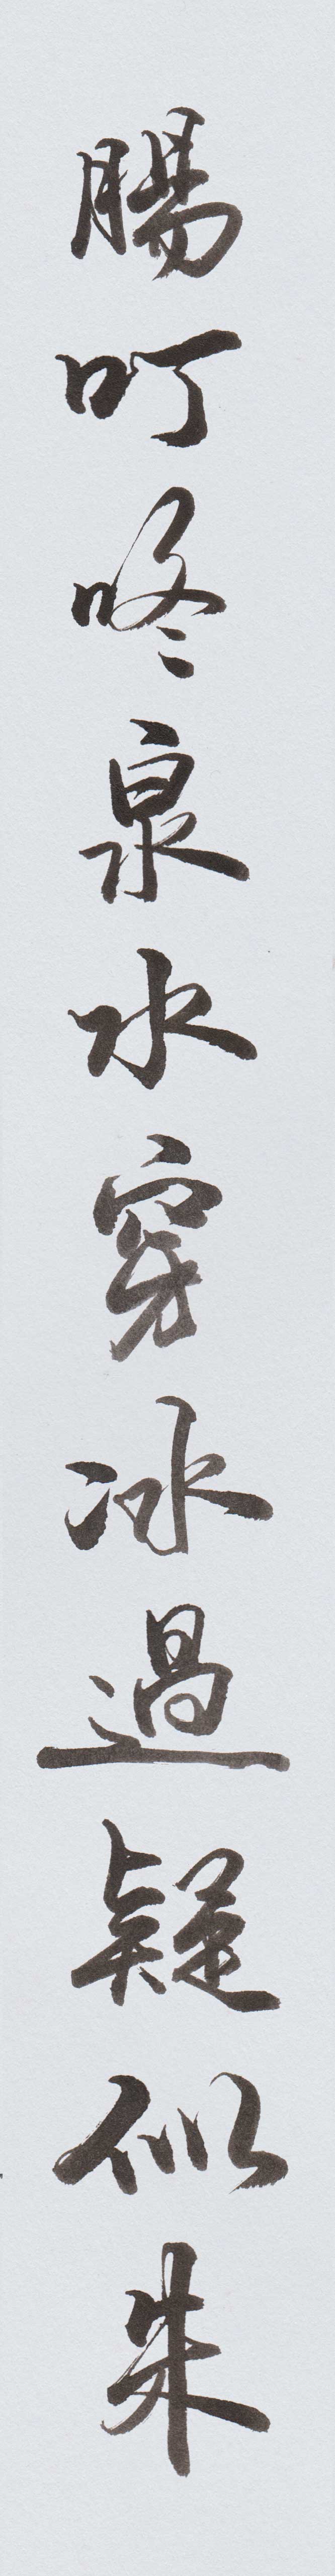 腸叮咚泉水穿冰過疑似朱